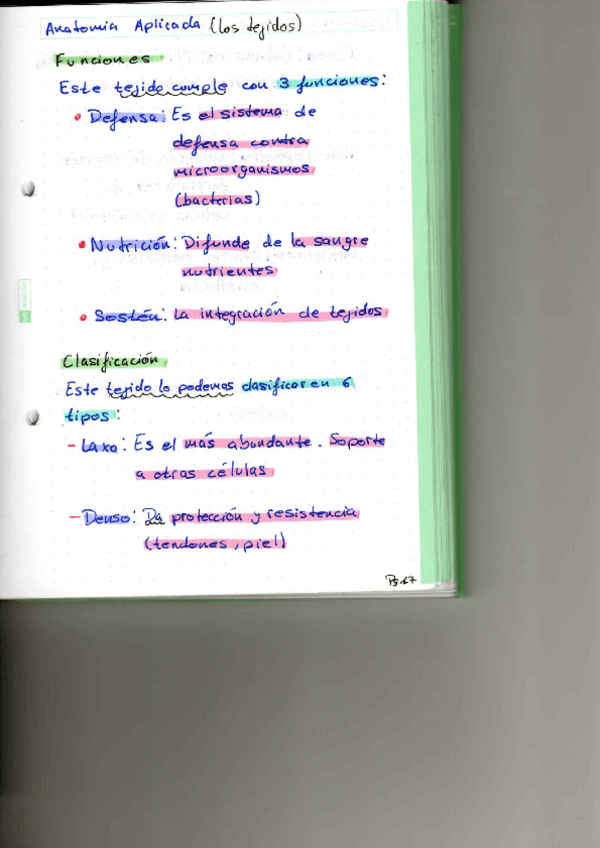 Anatomía Aplicada (Los tejidos)
Funciones
Este tejido cumple con 3 funciones:
• Defensa: Es el sistema de
defensa contra
microorganismos
(bacterias)
• Nutrición: Difunde de la sangre
nutrientes
• Sostén: La integración de tejidos
Clasificación
Este tejido lo podemos clasificar en 6
tipos:
- Laxo: Es el más abundante. Soporte
a otras células
- Denso: Da protección y resistencia
(tendones, piel)
Pg.17